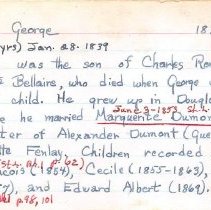 George 18
yrs) Jan. 28. 1839
was the son of Charles Ro
Bellairs, who died when George
child. He grew up in Dougl
June 3-1853 St.
e he married Marguerite Dumon
ter of Alexander Dumont (Que
tte Fenlay. Children recorded
St. A. bk. 1 p. 62)
cois (1854), Cecile (1855-1863),
y), and Edward Albert (1869).
p. 98, 101